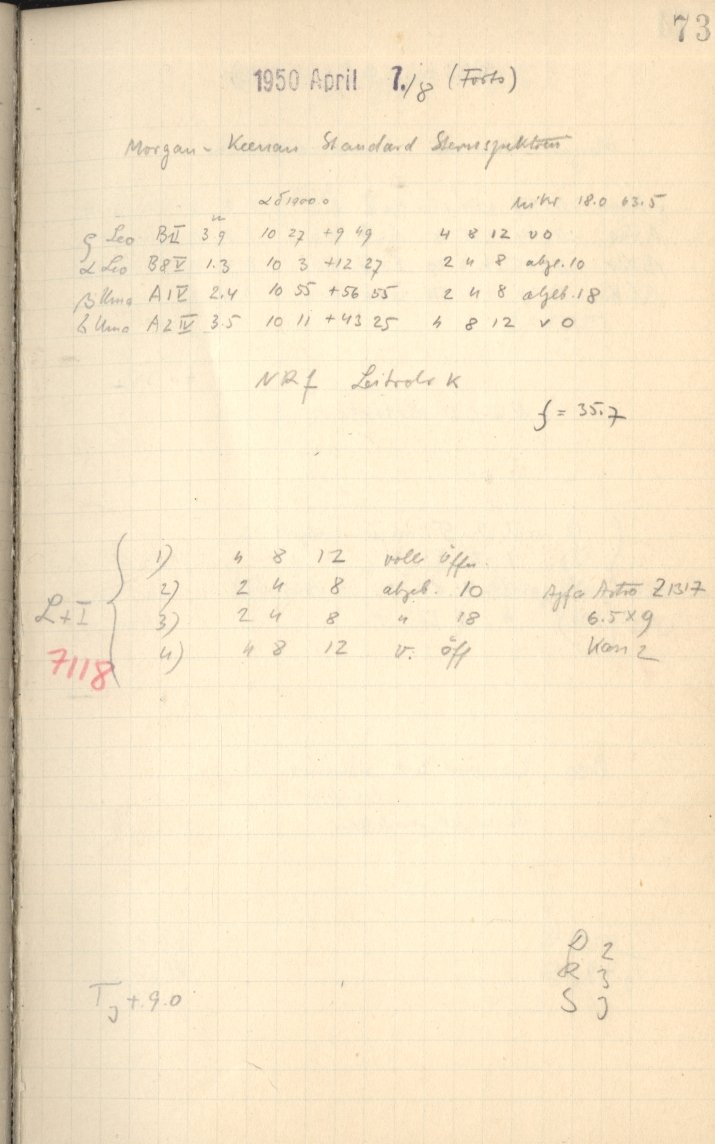 73
1950 April 7./8 (Forts)
Morgan - Keenan Standard Sternspektren
αδ 1900.0 Mikr 18.0 63.5
ρ Leo BII 3.9 10 27 +9 49 4 8 12 v O
α Leo B8V 1.3 10 3 +12 27 2 4 8 abge. 10
β Uma A1V 2.4 10 55 +56 55 2 4 8 abgeb. 18
λ Uma A2IV 3.5 10 11 +43 25 4 8 12 v O
NRf Leitrohr K
f = 35.7
1) 4 8 12 volle Öffn.
2) 2 4 8 abgeb. 10 Agfa Astro Z1317
L+I 3) 2 4 8 " 18 6.5×9
7118 4) 4 8 12 v. Öff Kass 2
D 2
R 3
T + 9.0 S